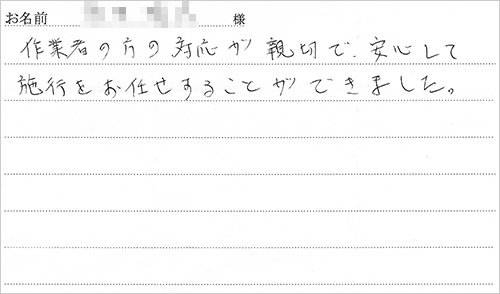 お名前 様
作業者の方の対応が親切で、安心して
施行をお任せすることができました。